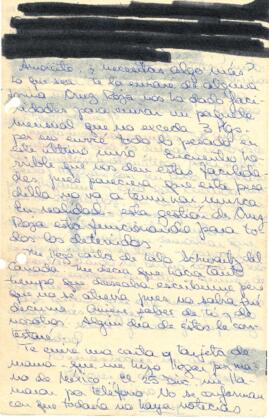 Amorcito, ¿ necesitas algo más?
lo que sea te lo enviaré de alguna
forma. Cruz Roja nos ha dado faci-
lidades para enviar un paquete
mensual que no exceda 3 Kgs.
por eso envié todo lo pesado en
este último envío. Encuentro ho-
rrible que nos den estas facilida-
des, pues pareciera que esta pesa-
dilla no va a terminar nunca.
En realidad esta gestión de Cruz
Roja está funcionando para to-
dos los detenidos.
Me llegó carta de Lala Schwartz del
Canadá. Me decía que hace tanto
tiempo que deseaba escribirme pero
que no se atrevía pues no sabía qué
decirme. Quiere saber de ti y de
nosotros. Algún día de éstos le con-
testaré.
Te envié una carta y tarjeta de
mamá que me hizo llegar
de México. El 25 Dic. me lla-
maron por teléfono. No se conforman
con que todavía no haya noticia